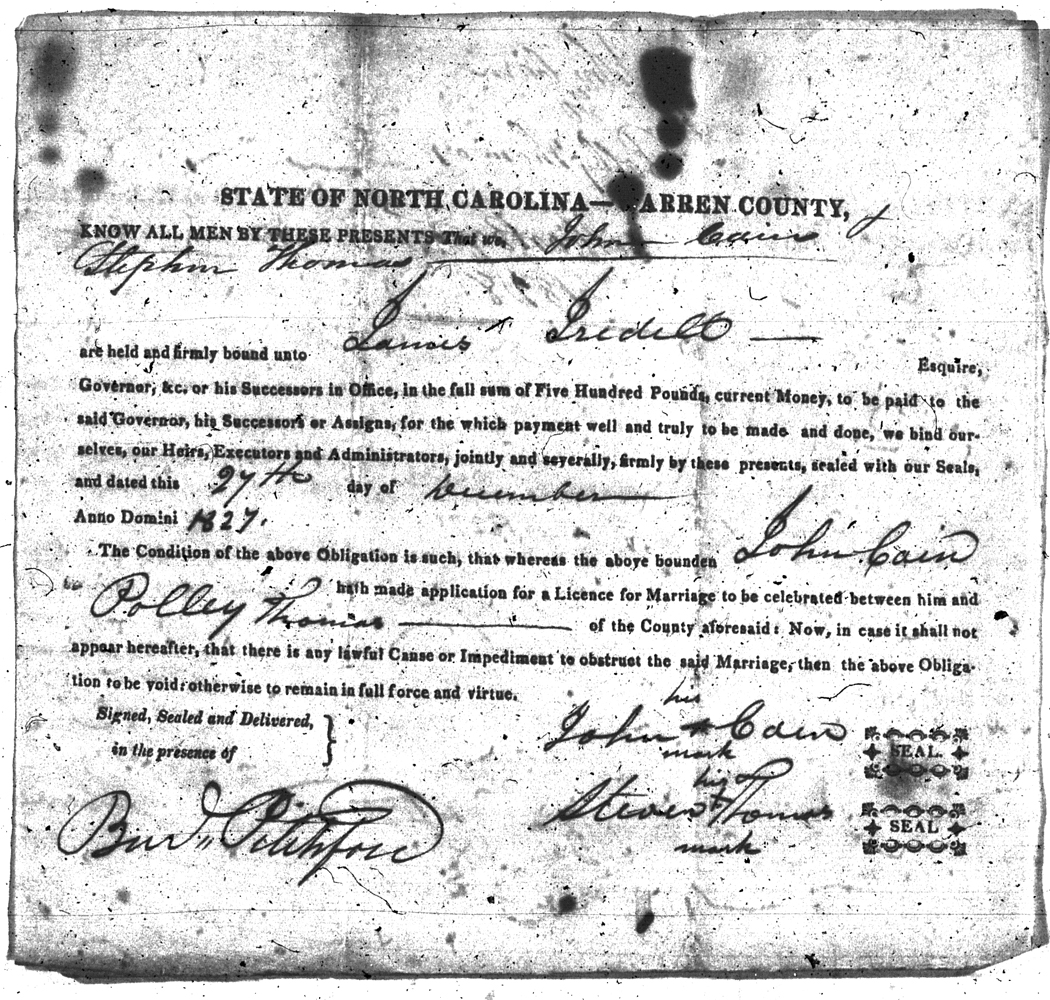 STATE OF NORTH CAROLINA— ARREN COUNTY,
KNOW ALL MEN BY THESE PRESENTS That we, John Cain &
Stephen Thomas
James Iredell
are held and firmly bound unto
Esquire,
Governor, &c. or his Successors in Office, in the full sum of Five Hundred Pounds, current Money, to be paid to the
said Governor, his Successors or Assigns, for the which payment well and truly to be made and done, we bind our-
selves, our Heirs, Executors and Administrators, jointly and severally, firmly by these presents, sealed with our Seals,
and dated this 27th day of December
Anno Domini 1827.
The Condition of the above Obligation is such, that whereas the above bounden John Cain
hath made application for a Licence for Marriage to be celebrated between him and
Polley Thomas of the County aforesaid: Now, in case it shall not
appear hereafter, that there is any lawful Cause or Impediment to obstruct the said Marriage, then the above Obliga-
tion to be void: otherwise to remain in full force and virtue.
Signed, Sealed and Delivered,
in the presence of
his
John + Cain
mark
SEAL.
his
Steven + Thomas
mark
SEAL
Pitchford